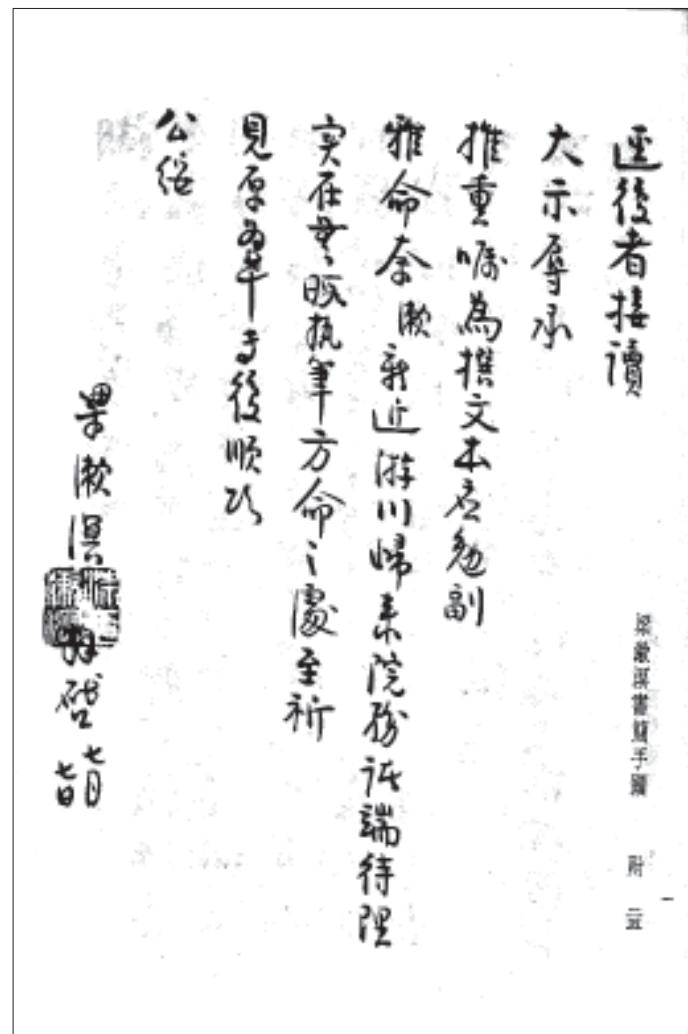 梁漱溟書簡手蹟　附
逕復者接讀
大示辱承
推重嘱為撰文本应勉副
雅命奈漱新近游川歸来院務诸端待理
实在無暇执筆方命之處至祈
見原為幸专復順頌
公綏
梁漱溟拜啓 七月七日